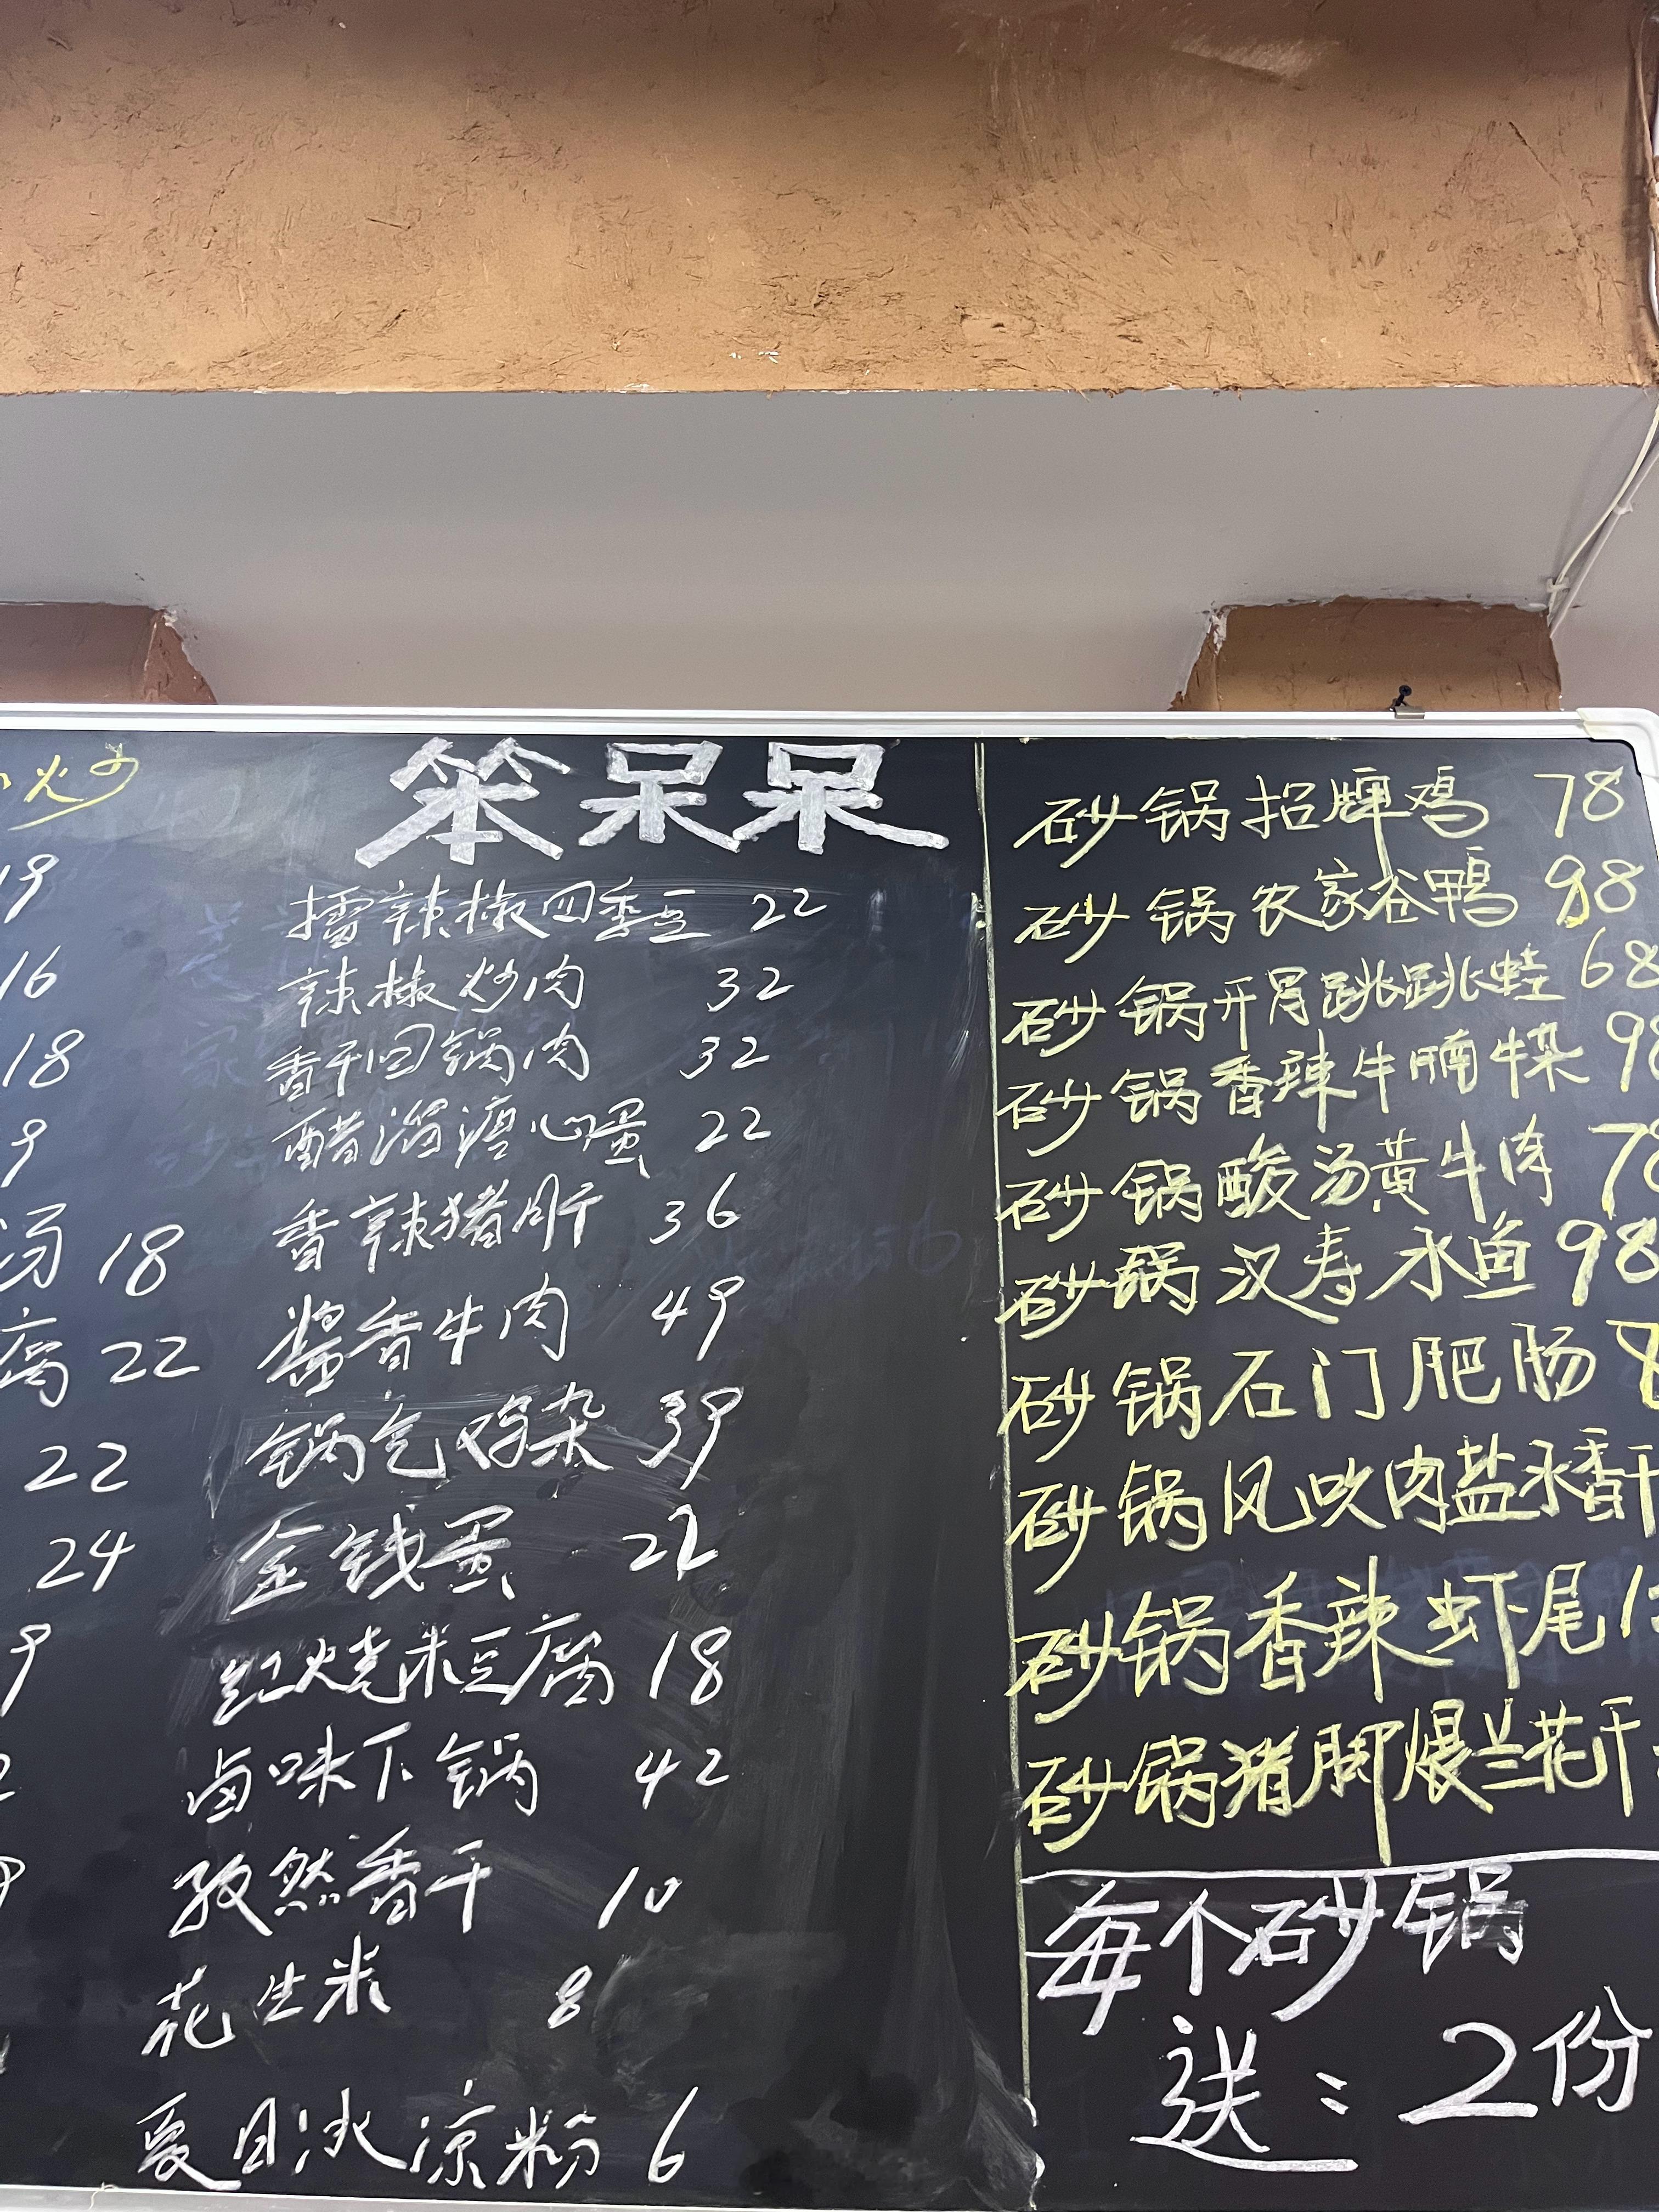 炒
19
16
18
9
汤 18
腐 22
22
24
9
2
笨呆呆
擂辣椒四季豆 22
辣椒炒肉 32
香干回锅肉 32
醋溜溏心蛋 22
香辣猪肝 36
酱香牛肉 49
锅气鸡杂 39
金钱蛋 22
红烧米豆腐 18
卤味下锅 42
孜然香干 10
花生米 8
夏日冰凉粉 6
砂锅招牌鸡 78
砂锅农家谷鸭 98
砂锅开胃跳跳蛙 68
砂锅香辣牛腩牛杂 98
砂锅酸汤黄牛肉 78
砂锅汉寿水鱼 98
砂锅石门肥肠 8
砂锅风吹肉盐水香干
砂锅香辣虾尾 1
砂锅猪脚煨兰花干
每个砂锅
送：2份